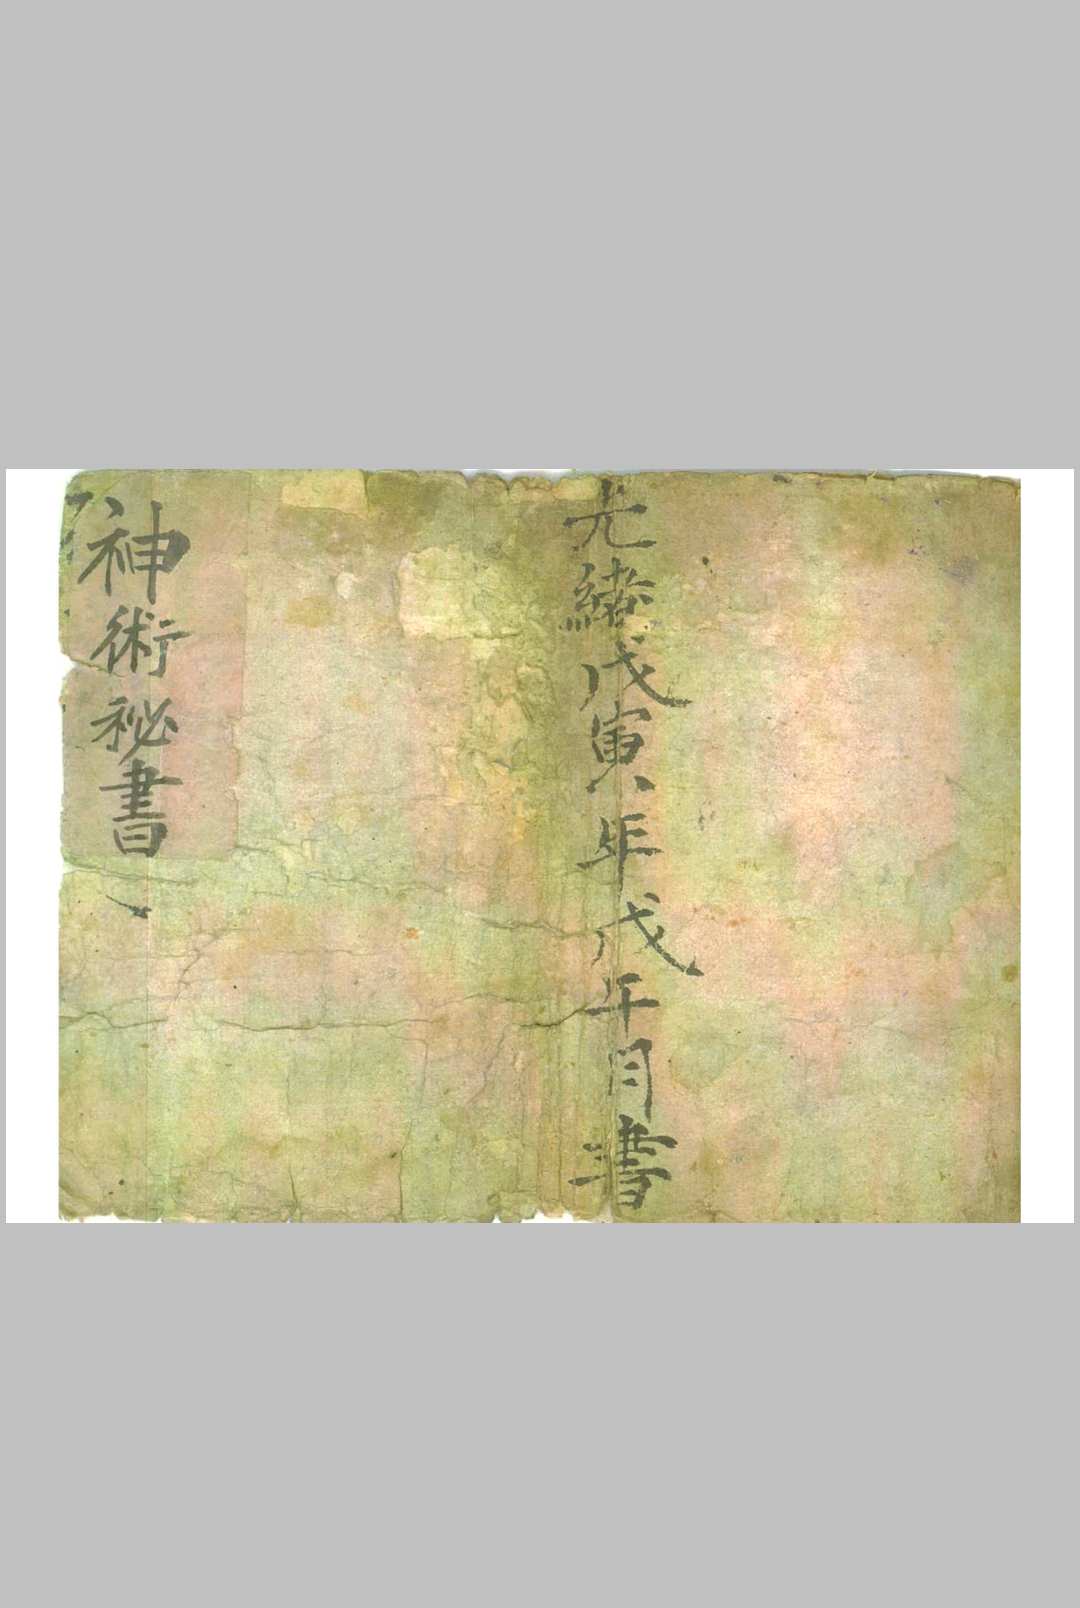 光緒戊寅年戊午月書
神術秘書